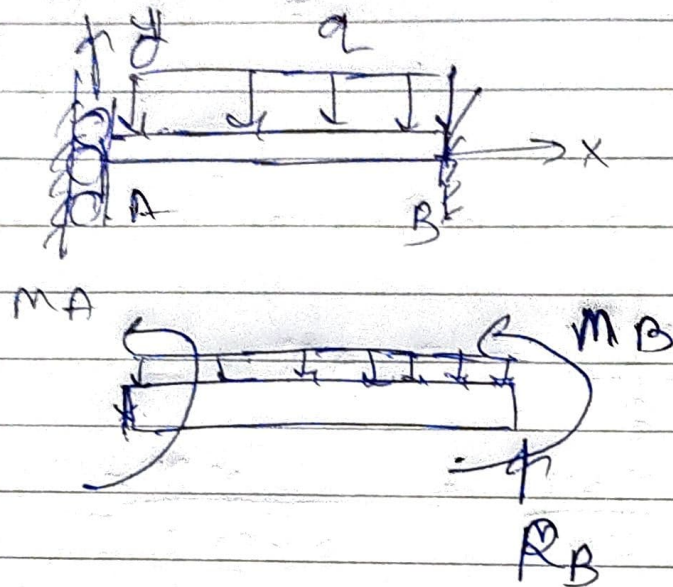 y q
x
A B
MA
MB
RB